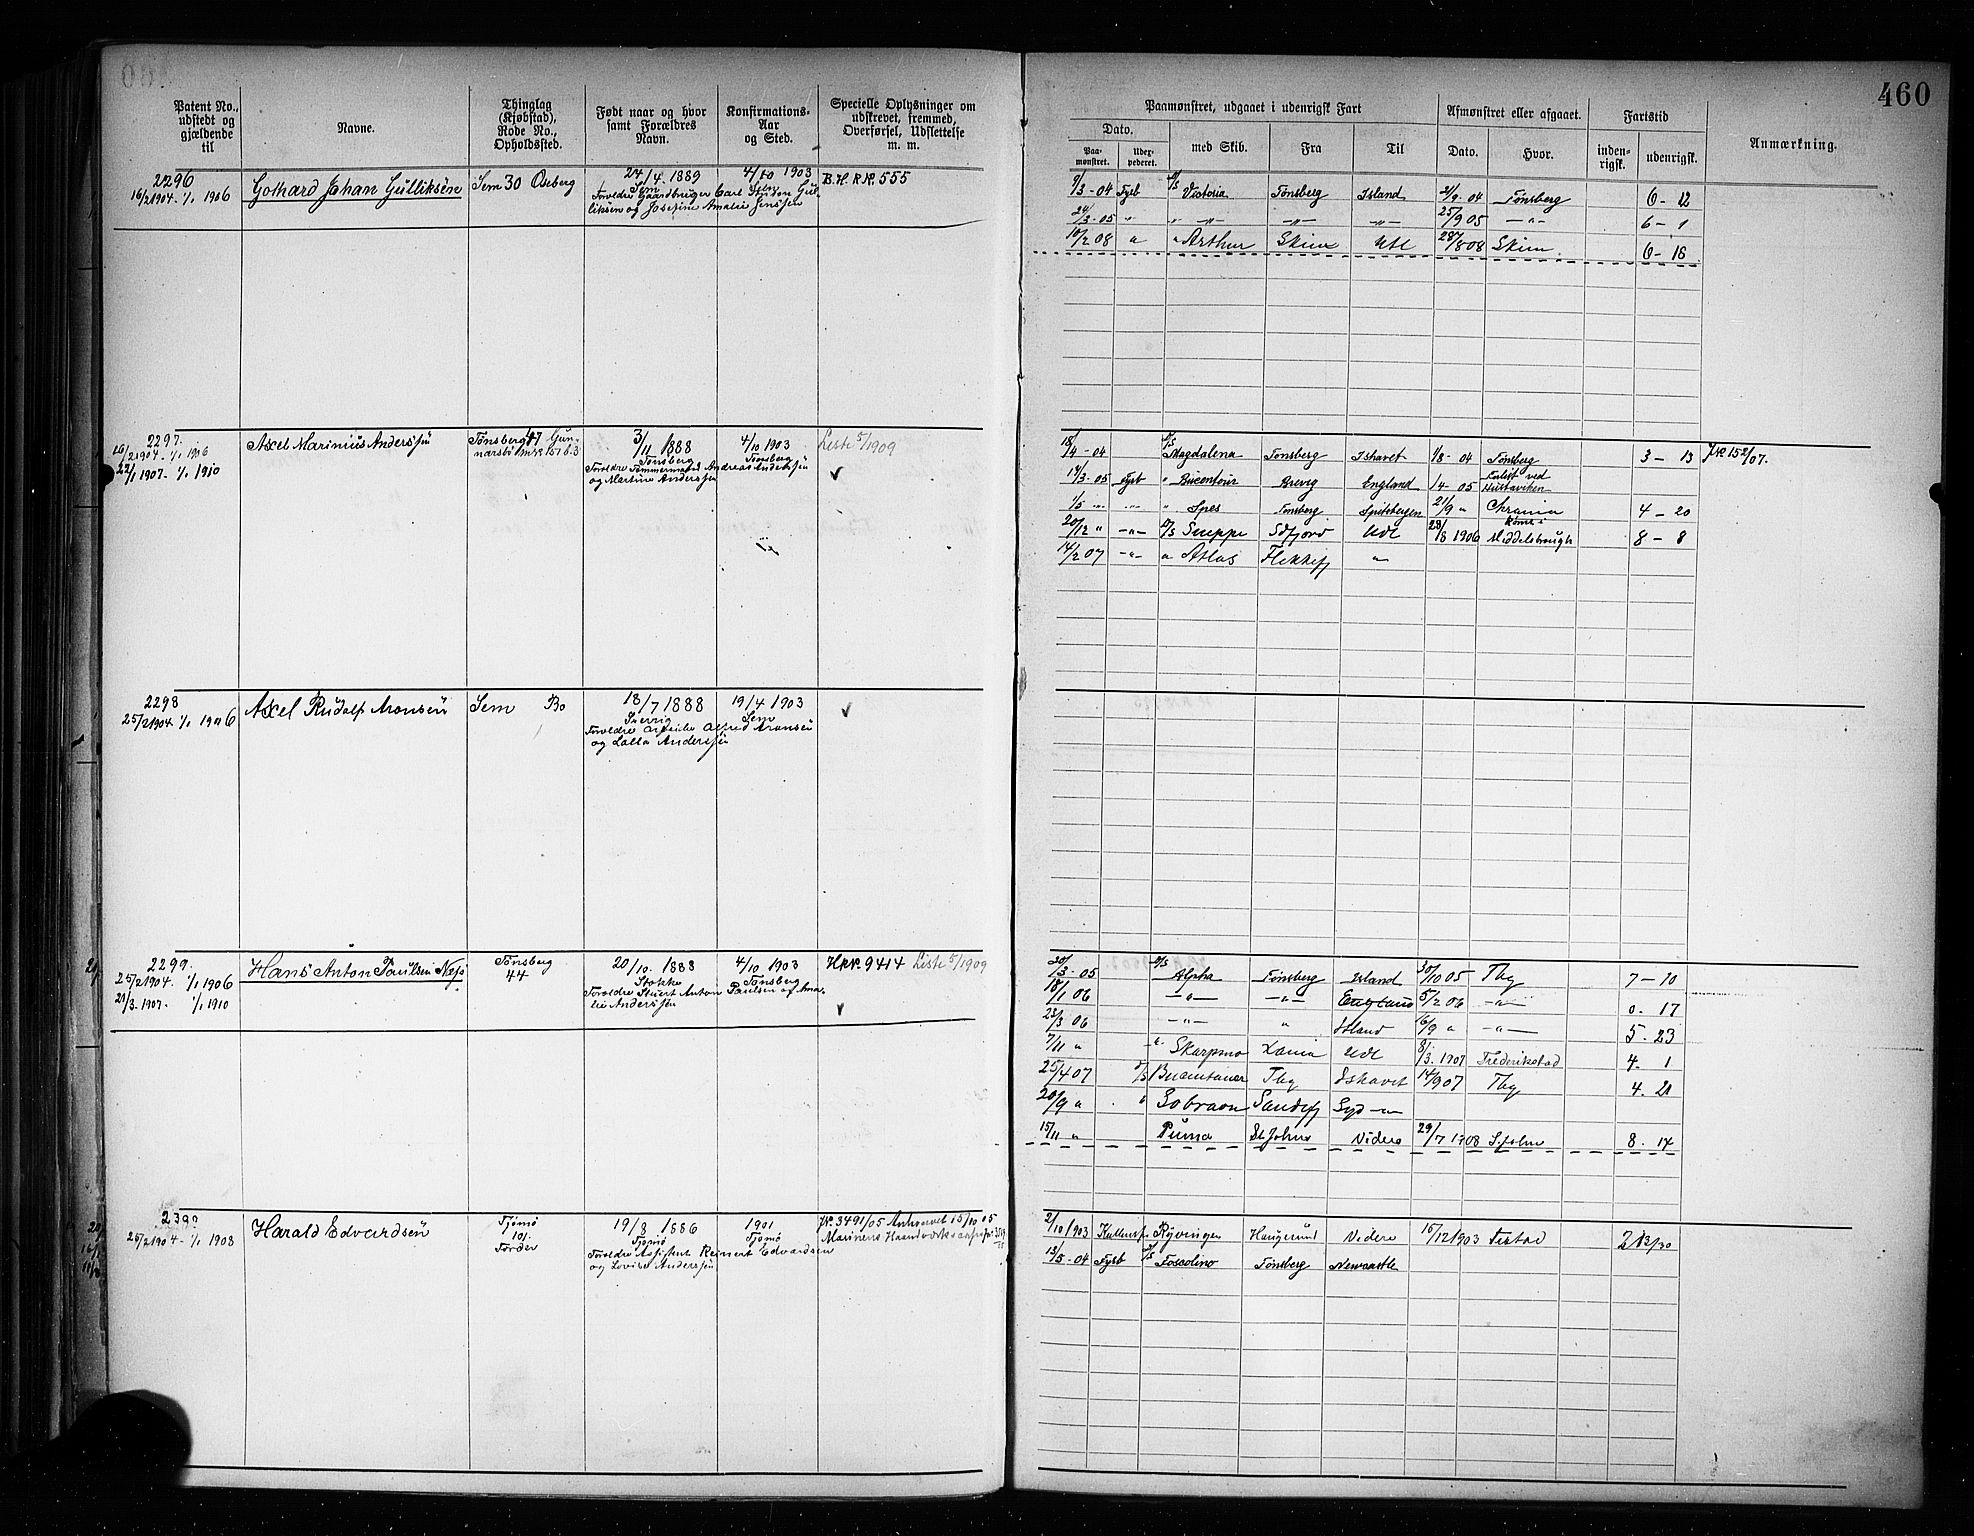 460
Patent No., udstedt og gjældende til
Navne.
Thinglag (Kjøbstad), Rode No., Opholdssted.
Født naar og hvor samt Forældres Navn.
Konfirmations-Aar og Sted.
Specielle Oplysninger om udskrevet, fremmed, Overførsel, Udslettelse m. m.
Paamønstret, udgaaet i udenrigsk Fart
Afmønstret eller afgaaet.
Fartstid
Anmærkning.
Dato.
Paamønstret.
Udexpederet.
med Skib.
Fra
Til
Dato.
Hvor.
indenrigsk.
udenrigsk.
2296
16/2 1904. 1/1 1906
Gothard Johan Gulliksen
Sem 30 Oseberg
24/4. 1889
Sem
Foreldre Gaardbruger Carl Anton Gul-
liksen og Josefine Amalie Jenssen
4/10 1903
B.H.R.R. 555
9/3-04 Fysb Victoria Tønsberg Island 21/9-04 Tønsberg 6-12
24/3-05 " " -"- -"- -"- 25/9 05 -"- 6-1
10/2 08 " " Arthur Skien Udl 28/8 08 Skien 6-18
2297.
16/2 1904. 1/1 1906
22/1 1907. 1/1 1910
Axel Marinius Anderssen
Tønsberg 47 Gun-
narsbø
3/11 1888
Tønsberg
Foreldre Tømmermand Andreas Anderssen
og Martine Anderssen
4/10 1903
Tønsberg
Liste 5/1909
18/4-04 Magdalena Tønsberg Ishavet 1/8-04 Tønsberg 3-13 JNr 152/07.
14/3-05 Fysb " Bucentour Brevig England 1/4-05 Forlist ved
Hustaviken
1/5 -"- -"- " Spes Tønsberg Spitsbergen 21/9 " Chrania 4-20
20/12 " -"- Snæppe Idfjord Udl 28/8 1906 Rømt i
Middelsbrough 8-8
14/2 07 -"- " Atlas Flekkefj "
2298
25/2 1904. 1/1 1906
Axel Rudolf Aronsen
Sem Bo
18/7 1888
Sverrig
Foreldre Arbeider Alfred Aronsen
og Lalla Anderssen
19/4 1903
Sem
2299
25/2 1904. 1/1 1906
20/3. 1907. 1/1 1910
Hans Anton Paulsen Næs
Tønsberg
44
20/10. 1888
Stokke
Foreldre Stuert Anton Paulsen og Ama-
lie Anderssen
4/10 1903
Tønsberg
H.R.R. 9414 Liste 5/1909
20/3-05 Alpha Tønsberg Island 30/10 05 Tbg 7-10
18/1 06 -"- -"- England 5/2 06 -"- 0. 17
23/3 06 -"- " Island 16/9 " -"- 5. 23
7/11 " " Skarpsno Xania Udl 8/3. 1907 Frederikstad 4. 1
25/4 07 Bucentaur Tbg Ishavet 14/9 07 Tbg 4. 20
20/9 " " Sobraon Sandefj Syd -"-
15/11 " Puma St. Johns Videre 29/7 1908 St. Johns 8. 14
25/2 1904-1/1 1908
Harald Edvardsen
Tjømø
101.
Førder
19/8 1886
Tjømø
Foreldre Assistent Reinert Edvardsen
og Lovise Anderssen
1901
Tjømø
JNr. 3491/05 Anhvervet 15/10 05
Marinens Haandværks
2/10 1903 Ryvingen Haugesund Videre 15/12 1903 Festad 2 13/30
13/5-04 Fysb Foscolino Tønsberg Newcastle